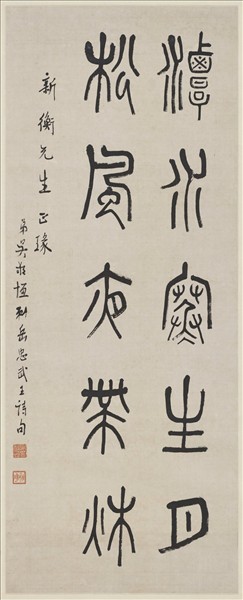 潭水寒生月
松風夜帶秋
新衡先生正
弟吳敬恆岳忠武王詩句